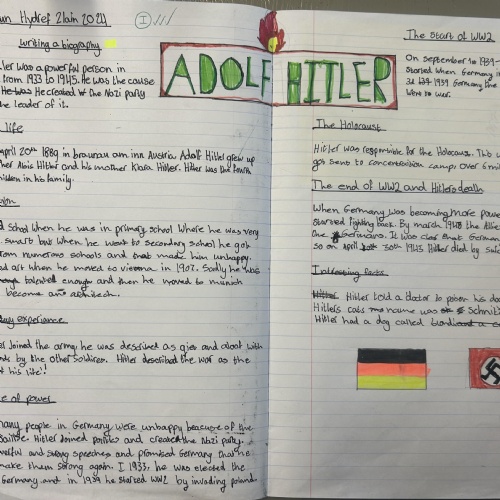 un Hydref 21ain 2024
writing a biography
ADOLF HITLER
ler was a powerful person in
from 1933 to 1945. He was the cause
He was He created the Nazi party
he leader of it.
life
April 20th 1889 in braunau am inn Austria Adolf Hitler grew up
ther Alois Hitler and his mother Klara Hitler. Hitler was the fourth
hildren in his family.
School when he was in primary school where he was very
smart but when he went to secondary school he got
from numerous schools and that made him unhappy.
ed art when he moved to vienna in 1907. Sadly he was
talented enough and then he moved to munich
become an architect.
experience
er Joined the army. he was described as and aloof with
nds by the other soldires. Hitler described the war as the
of his life'!
e of power
many people in Germany were unhappy because of the
Hitler Joined politics and created the Nazi party.
werful and strong speeches and promised Germany that he
make them strong again. I 1933, he was elected the
Germany and in 1939 he started WW2 by invading poland
The start of WW2
On september 1st 1939
Started when Germany in
3rd 1939 Germany the
went to war.
The Holocaust
Hitler was responsible for the Holocaust. This w
got sent to concentration camp. Over 6 mill
The end of WW2 and Hitlers death
When Germany was becoming more power
started fighting back. By march 1945 the Allie
the Germans. It was clear that German
so on April 30th 1945 Hitler died by suic
Intresting facts
Hitler told a doctor to poison his do
Hitlers cats name was Schnitz
Hitler had a dog called